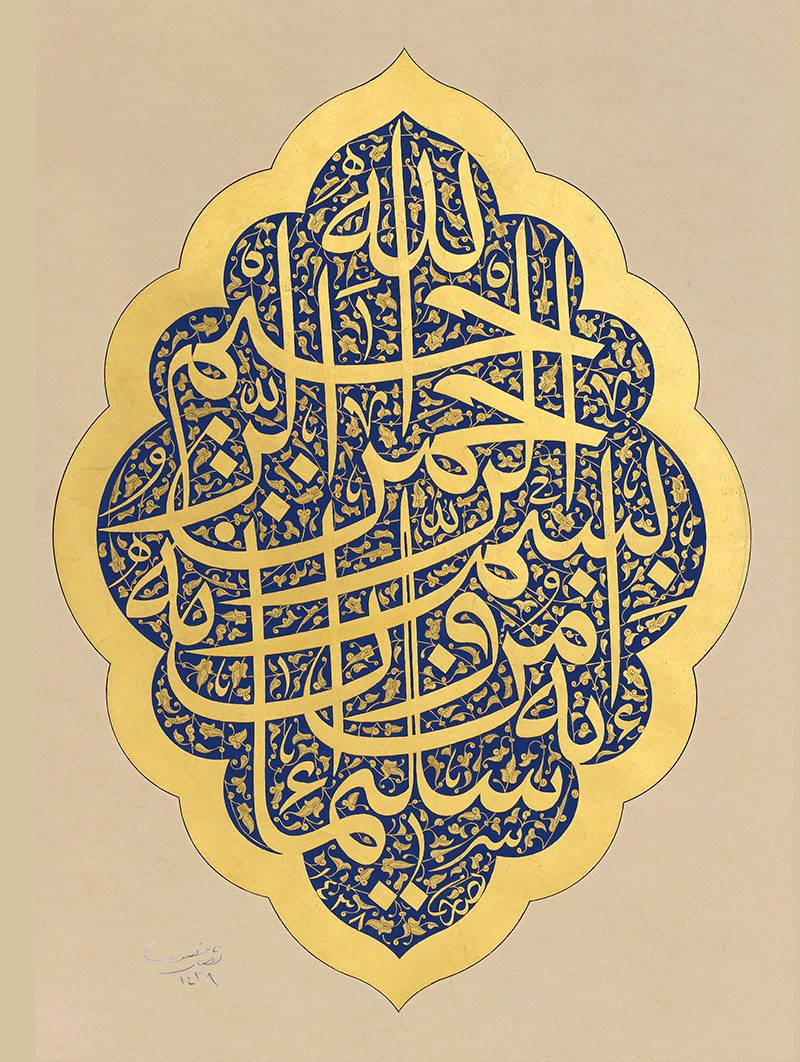 إنه من سليمان وإنه بسم الله الرحمن الرحيم
١٤٣٨
١٤٣٩